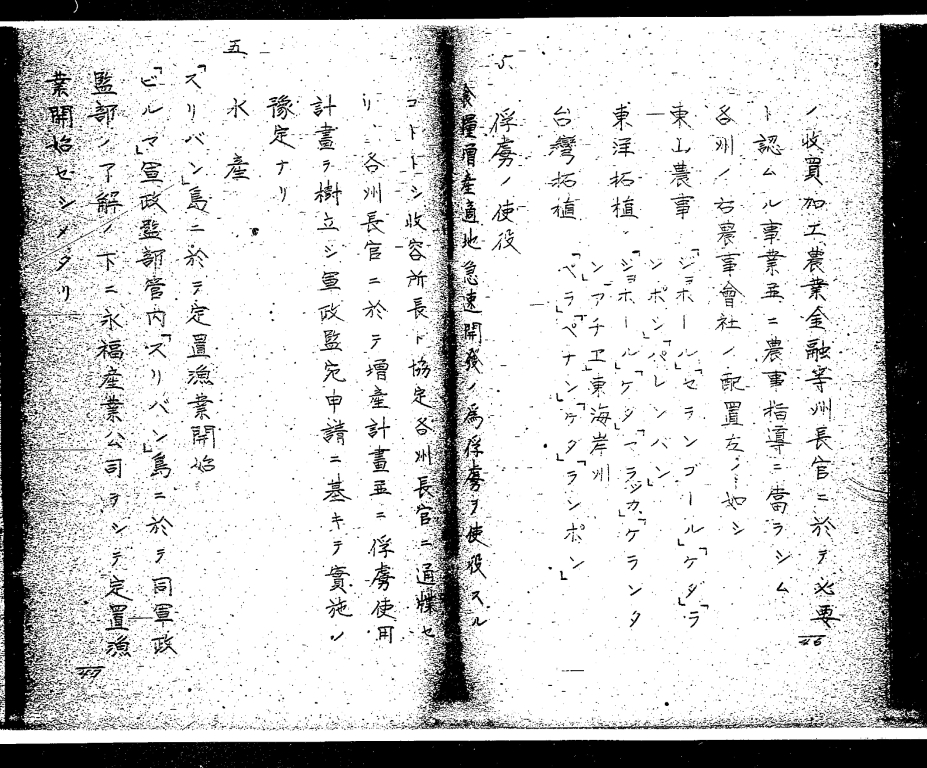 ノ收買加工農業金融等州長官ニ於テ必要
ト認ムル事業並ニ農事指導ニ當ラシム
各州ノ右農事會社ノ配置左ノ如シ
東山農事 「ジョホール」「セランゴール」「ケダ」「ラ
ンポン」「パレンバン」
東洋拓植 「ジョホール」「ケダ」「マラッカ」「ケランタ
ン」「アチエ」東海岸州
台灣拓植 「ペラ」「ペナン」「ケダ」「ランポン」
5. 俘虜ノ使役
食糧増産適地急速開發ノ爲俘虜ヲ使役スル
コトトシ收容所長ト協定各州長官ニ通牒セ
リ、各州長官ニ於テ増産計畫並ニ俘虜使用
計畫ヲ樹立シ軍政監宛申請ニ基キテ實施ノ
豫定ナリ
五 水産
「スリバン」島ニ於テ定置漁業開始
「ビルマ」軍政監部管内「スリバン」島ニ於テ同軍政
監部ノ了解ノ下ニ永福産業公司ヲシテ定置漁
業開始セシメタリ
46
47